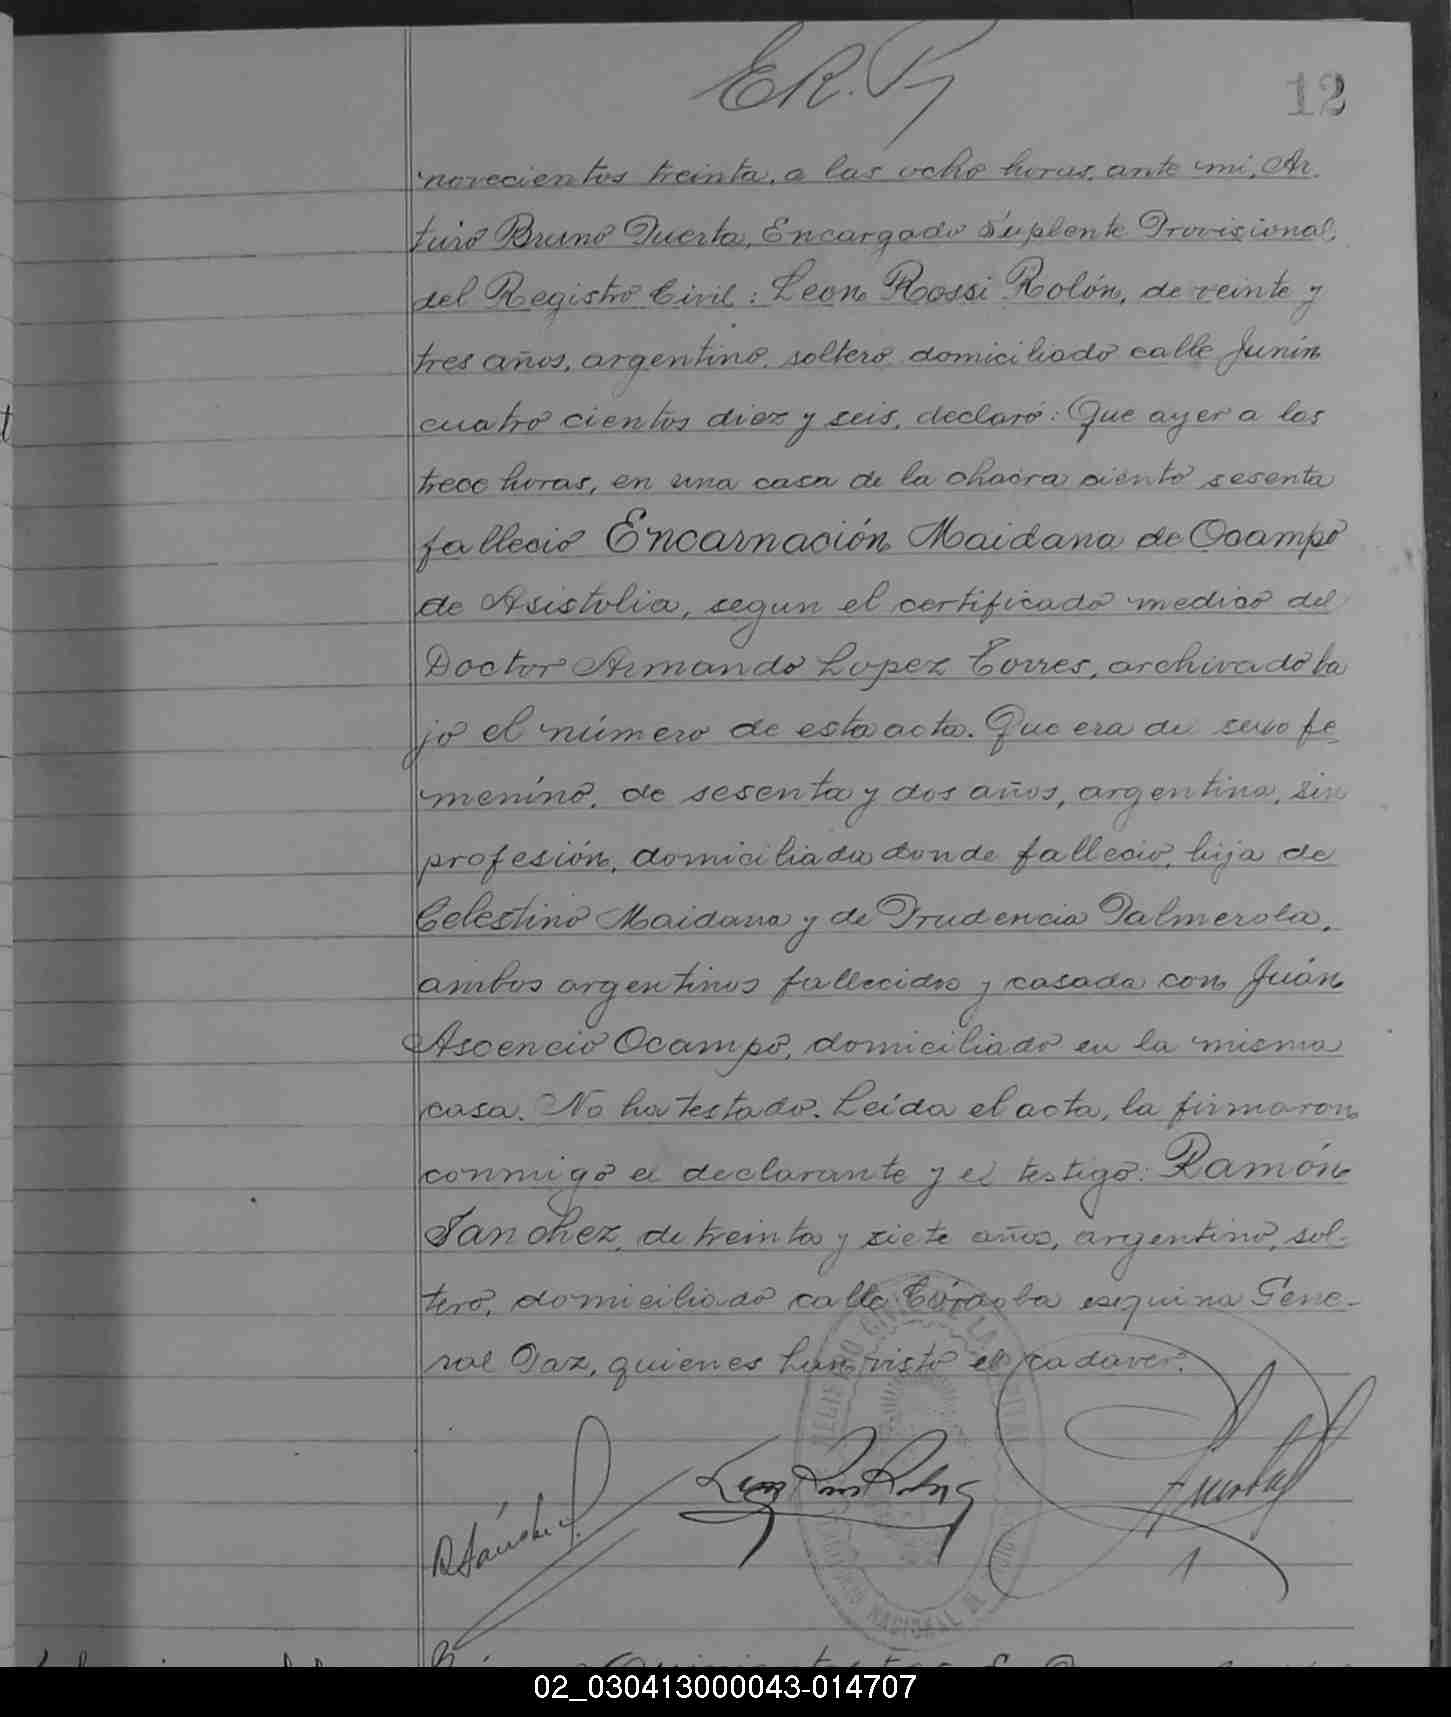 E R. P
12
novecientos treinta, a las ocho horas, ante mi, Ar
turo Bruno Puerta, Encargado Suplente Provisional
del Registro Civil: Leon Rossi Rolón, de veinte y
tres años, argentino, soltero, domiciliado calle Junín
cuatro cientos diez y seis, declaró: Que ayer a las
trece horas, en una casa de la chacra ciento sesenta
falleció Encarnación Maidana de Ocampo
de Asistolia, segun el certificado medico del
Doctor Armando Lopez Torres, archivado ba
jo el número de esta acta. Que era de sexo fe
menino, de sesenta y dos años, argentina, sin
profesión, domiciliada donde falleció, hija de
Celestino Maidana y de Prudencia Palmerola,
ambos argentinos fallecidos y casada con Juán
Ascencio Ocampo, domiciliado en la misma
casa. No ha testado. Leída el acta, la firmaron
conmigo el declarante y el testigo: Ramón
Sanchez, de treinta y siete años, argentino, sol-
tero, domiciliado calle Córdoba esquina Gene-
ral Paz, quienes han visto el cadaver.
R Sánchez
REGISTRO CIVIL DE LA CAPITAL
NACIONAL DE
02_030413000043-014707